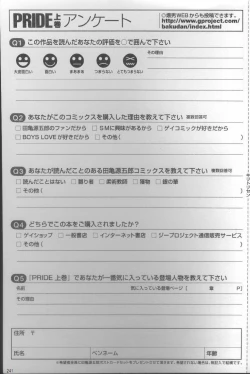 PRIDE上巻 アンケート
http://www.gproject.com/
bakudan/index.html
Q1 この作品を読んだあなたの評価を○で囲んで下さい
大変面白い 面白い まあまあ つまらない とてもつまらない
その理由
Q2 あなたがこのコミックスを購入した理由を教えて下さい 複数回答可
□田亀源五郎のファンだから □SMに興味があるから □ゲイコミックが好きだから
□BOYS LOVEが好きだから □その他( )
Q3 あなたが読んだことのある田亀源五郎コミックスを教えて下さい 複数回答可
□読んだことはない □嬲り者 □柔術教師 □獲物 □銀の華
□その他( )
Q4 どちらでこの本をご購入されましたか?
□ゲイショップ □一般書店 □インターネット書店 □ジープロジェクト通信販売サービス
□その他( )
Q5 『PRIDE 上巻』であなたが一番気に入っている登場人物を教えて下さい
名前 気に入っている登場ページ[ 章 P]
その理由
住所 〒
氏名 ペンネーム 年齢